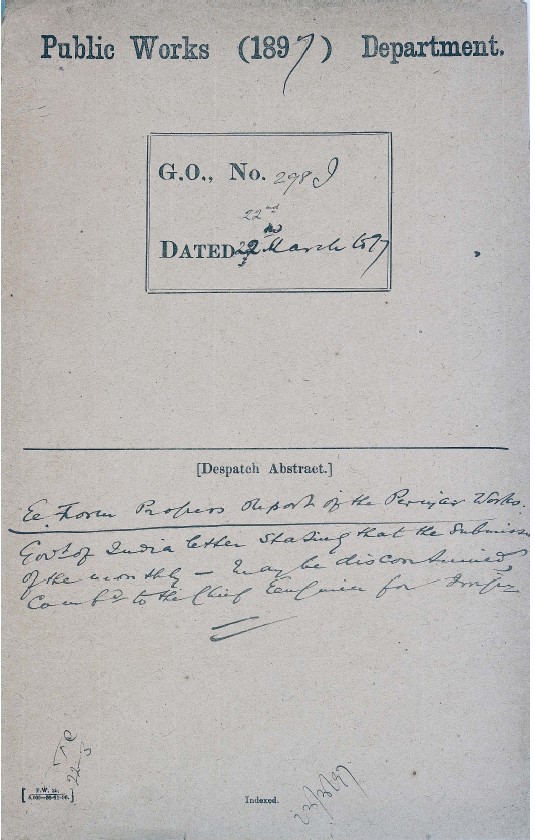 Public Works (1897) Department.
G.O., No. 298 I
22nd
DATED 22 March 1897
[Despatch Abstract.]
Progress Report of the Periyar Works.
Govt of India letter stating that the submission
of the monthly — may be discontinued
Comd to the Chief Engineer for
22-3
23/3/97
[P.W. 
Indexed.